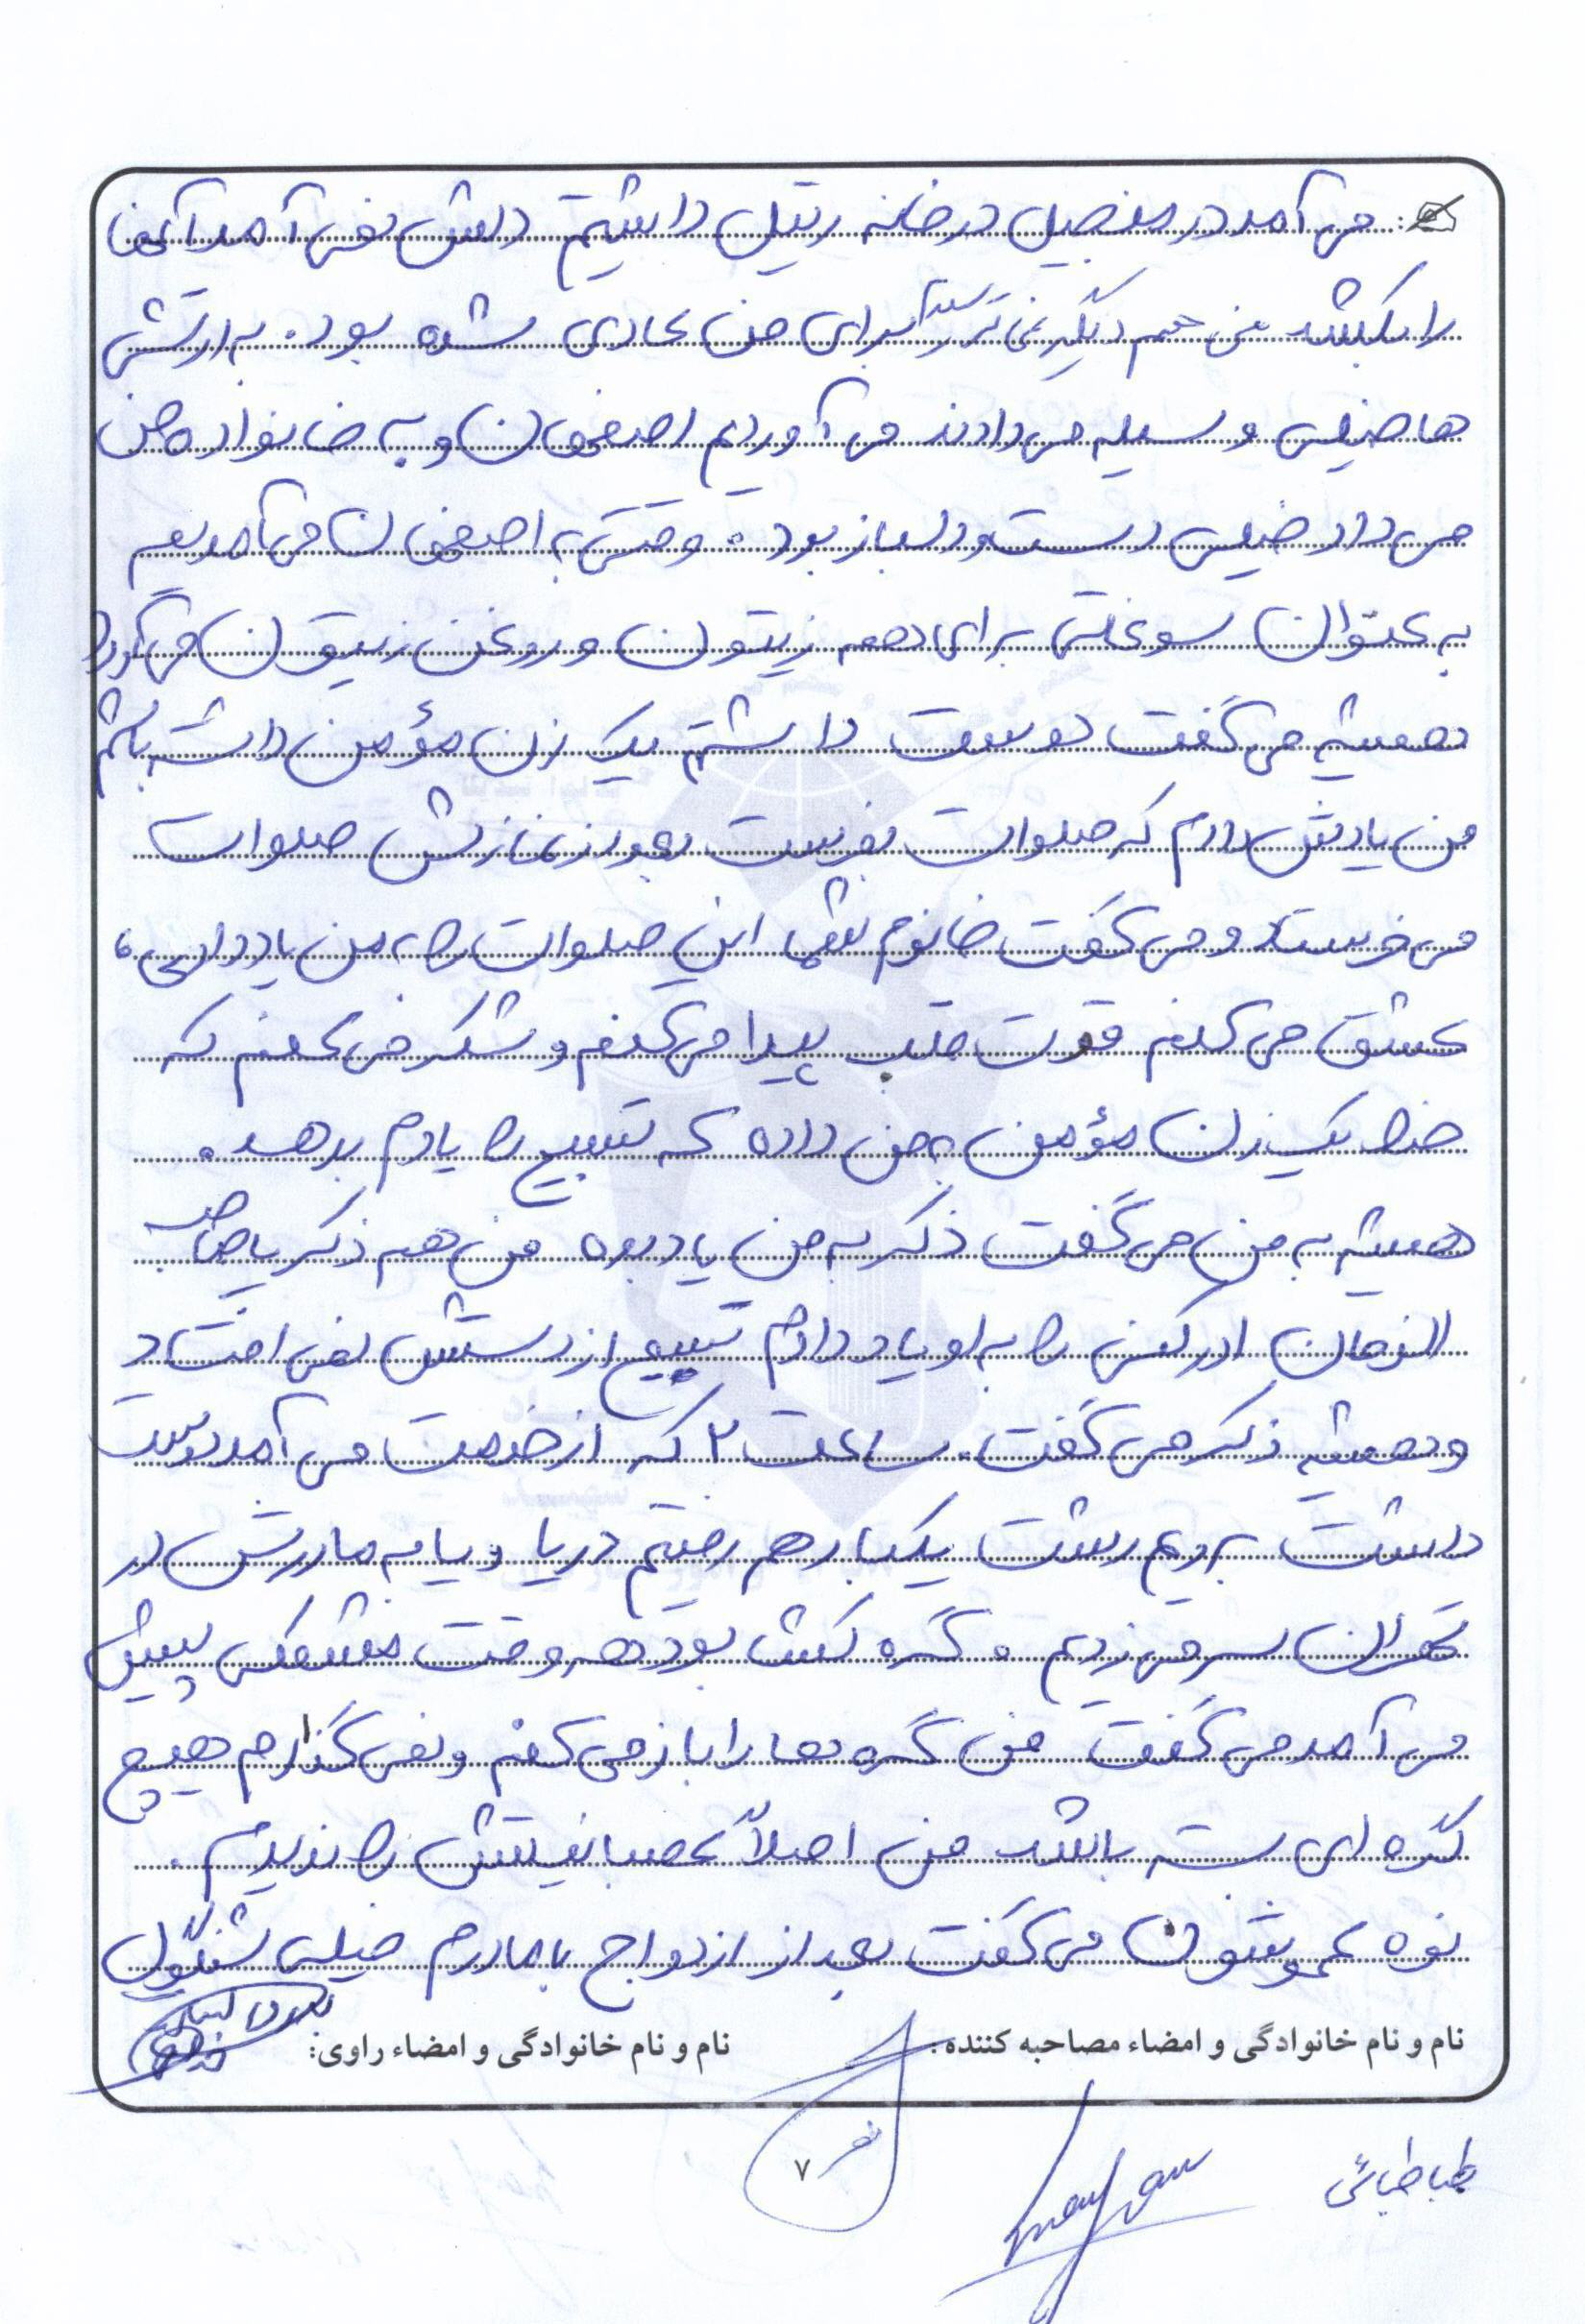 می آمد در منجیل در خانه رتیل داشتیم دلش نمی آمد آنها
را بکشد من هم دیگر نمی ترسیدم برای من عادی شده بود. به ارتشی
ها خیلی وسیله می دادند می آوردیم اصفهان و به خانواده من
می داد خیلی دست و دلباز بود. وقتی به اصفهان می آمدیم
به عنوان سوغاتی برای همه زیتون و روغن زیتون می آورد
همیشه می گفت دوست داشتم یک زن مؤمن داشته باشم
من یادش دادم که صلوات بفرست بعد از نمازش صلوات
می فرستاد و می گفت خانوم شما این صلوات را به من یاد دادی،
عشق می کنم قوت قلب پیدا می کنم و شکر می کنم که
خدا یک زن مؤمن به من داده که تسبیح را یادم بدهد.
همیشه به من می گفت ذکر به من یاد بده من هم ذکر یا صاحب
الزمان ادرکنی را به او یاد دادم تسبیح از دستش نمی افتاد
و همیشه ذکر می گفت. ساعت ۲ که از خدمت می آمد دوست
داشت برویم رشت یکبار هم رفتیم دریا و یا به مادرش در
تهران سر می زدیم. گره گشا بود هر وقت مشکلی پیش
می آمد می گفت من گره ها را باز می کنم و نمی گذارم هیچ
گره ای بسته باشد من اصلاً عصبانیتش را ندیدم.
نوه عموشون می گفت بعد از ازدواج با مادرم خیلی شنگول
نام و نام خانوادگی و امضاء مصاحبه کننده: نام و نام خانوادگی و امضاء راوی:
۷
طباطبائی